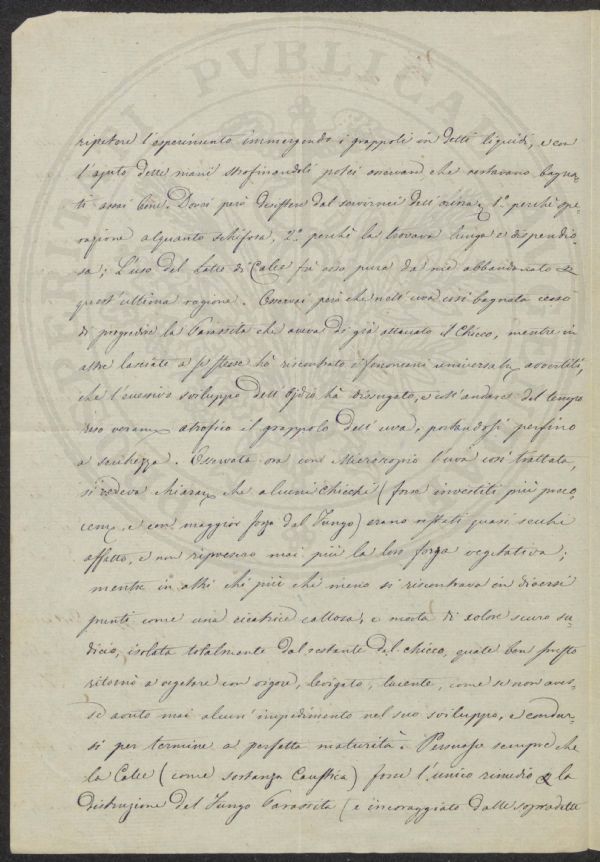 ripetere l'esperimento immergendo i grappoli in detti liquidi, e con
l'ajuto delle mani strofinandoli potei osservare che restavano bagna-
ti assai bene. Dovei però desistere dal servirmi dell'orina, 1.° perchè ope-
razione alquanto schifosa, 2.° perchè la trovava lunga e dispendio-
sa; L'uso del Latte di Calce fù esso pure da me abbandonato
quest'ultima ragione. Osservai però che nell'uva così bagnata cessò
di progredire la Parassita che aveva di già attaccato il Chicco, mentre in
altre lasciate a se stesse hò riscontrato i fenomeni universalm avvertiti,
che l'eccessivo sviluppo dell'Ojdio hà dissugato, e coll'andare del tempo
reso veram atrofico il grappolo dell'uva, portandosi perfino
a secchezza. Osservata ora con Microscopio l'uva così trattata,
si vedeva chiaram che alcuni Chicchi (forse investiti più preco-
cem, e con maggior forza dal Fungo) erano restati quasi secchi
affatto, e non ripresero mai più la loro forza vegetativa;
mentre in altri chi più chi meno si riscontrava in diversi
punti come una cicatrice callosa, e morta di colore scuro su-
dicio, isolata totalmente dal restante del chicco, quale ben presto
ritornò a vegetare con vigore, levigato, lucente, come se non aves-
se avuto mai alcun'impedimento nel suo sviluppo, e condur-
si per termine a perfetta maturità. Persuaso sempre che
la Calce (come sostanza Caustica) fosse l'unico rimedio la
distruzione del Fungo Parassita (e incoraggiato dalle sopradette